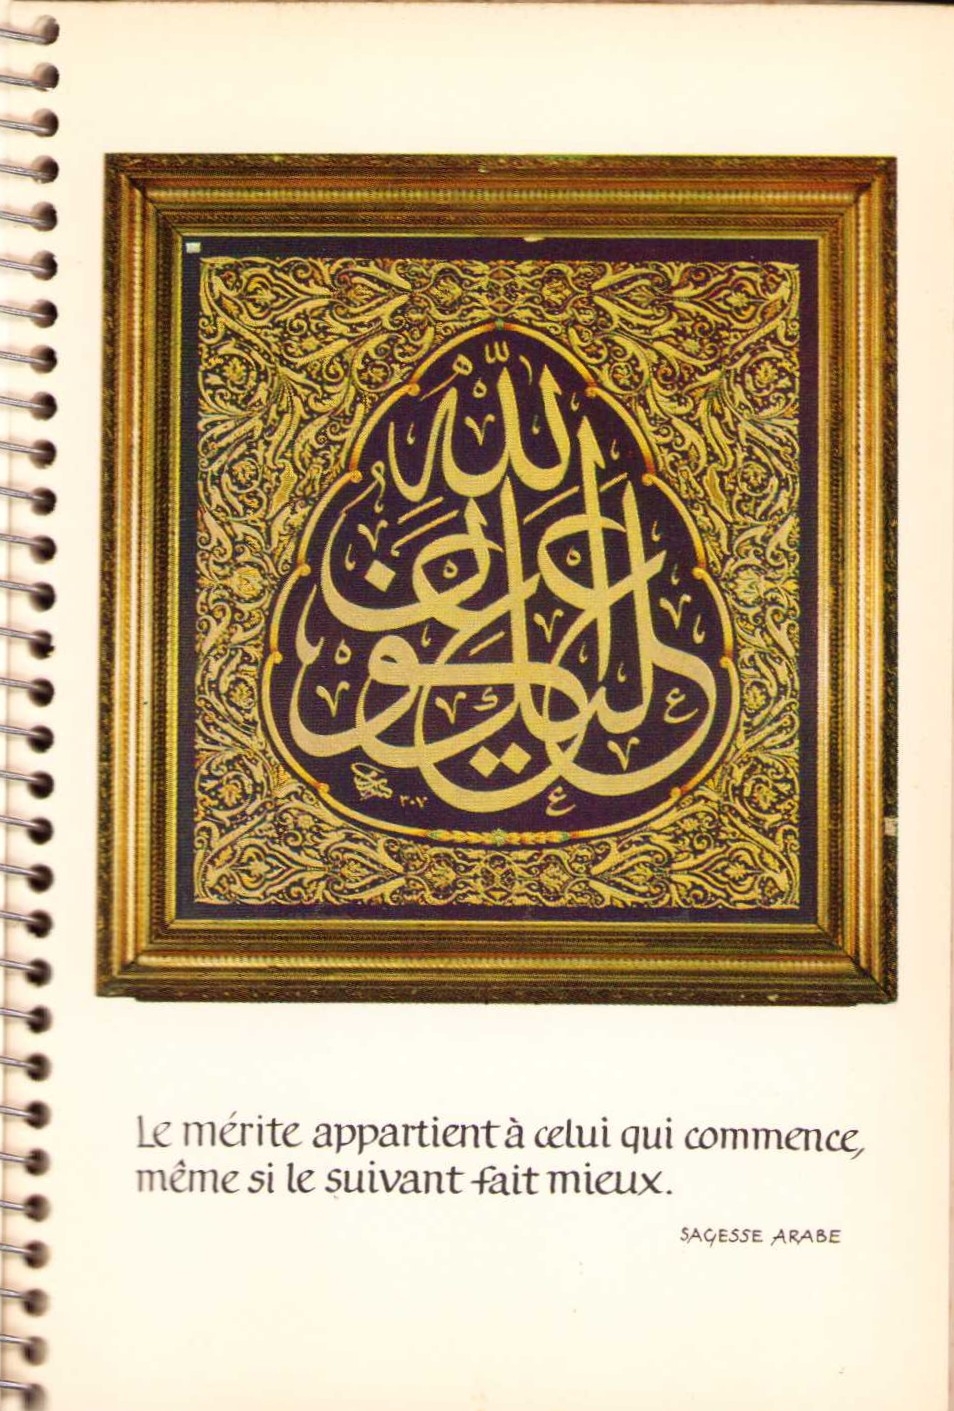 الله
Le mérite appartient à celui qui commence,
même si le suivant fait mieux.
SAGESSE ARABE